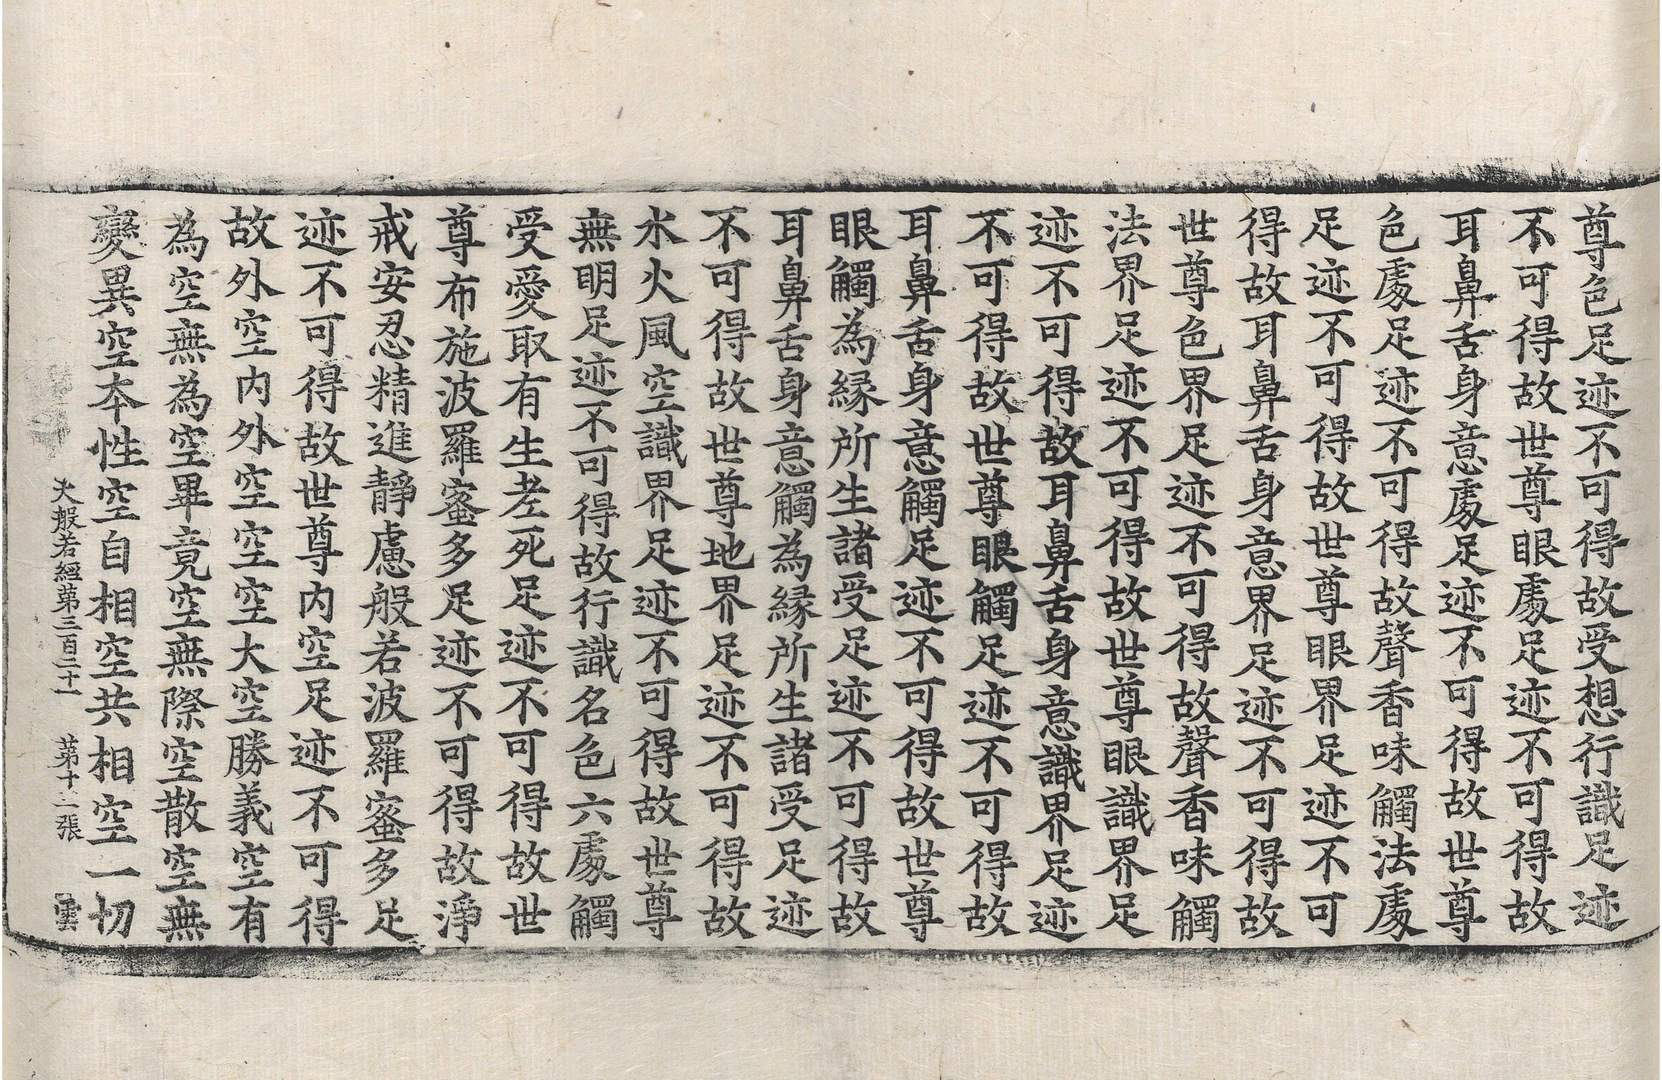 尊色足迹不可得故受想行識足迹
不可得故世尊眼處足迹不可得故
耳鼻舌身意處足迹不可得故世尊
色處足迹不可得故聲香味觸法處
足迹不可得故世尊眼界足迹不可
得故耳鼻舌身意界足迹不可得故
世尊色界足迹不可得故聲香味觸
法界足迹不可得故世尊眼識界足
迹不可得故耳鼻舌身意識界足迹
不可得故世尊眼觸足迹不可得故
耳鼻舌身意觸足迹不可得故世尊
眼觸為緣所生諸受足迹不可得故
耳鼻舌身意觸為緣所生諸受足迹
不可得故世尊地界足迹不可得故
水火風空識界足迹不可得故世尊
無明足迹不可得故行識名色六處觸
受愛取有生老死足迹不可得故世
尊布施波羅蜜多足迹不可得故淨
戒安忍精進靜慮般若波羅蜜多足
迹不可得故世尊內空足迹不可得
故外空內外空空空大空勝義空有
為空無為空畢竟空無際空散空無
變異空本性空自相空共相空一切
大般若經第三百二十一 第十二張 雲